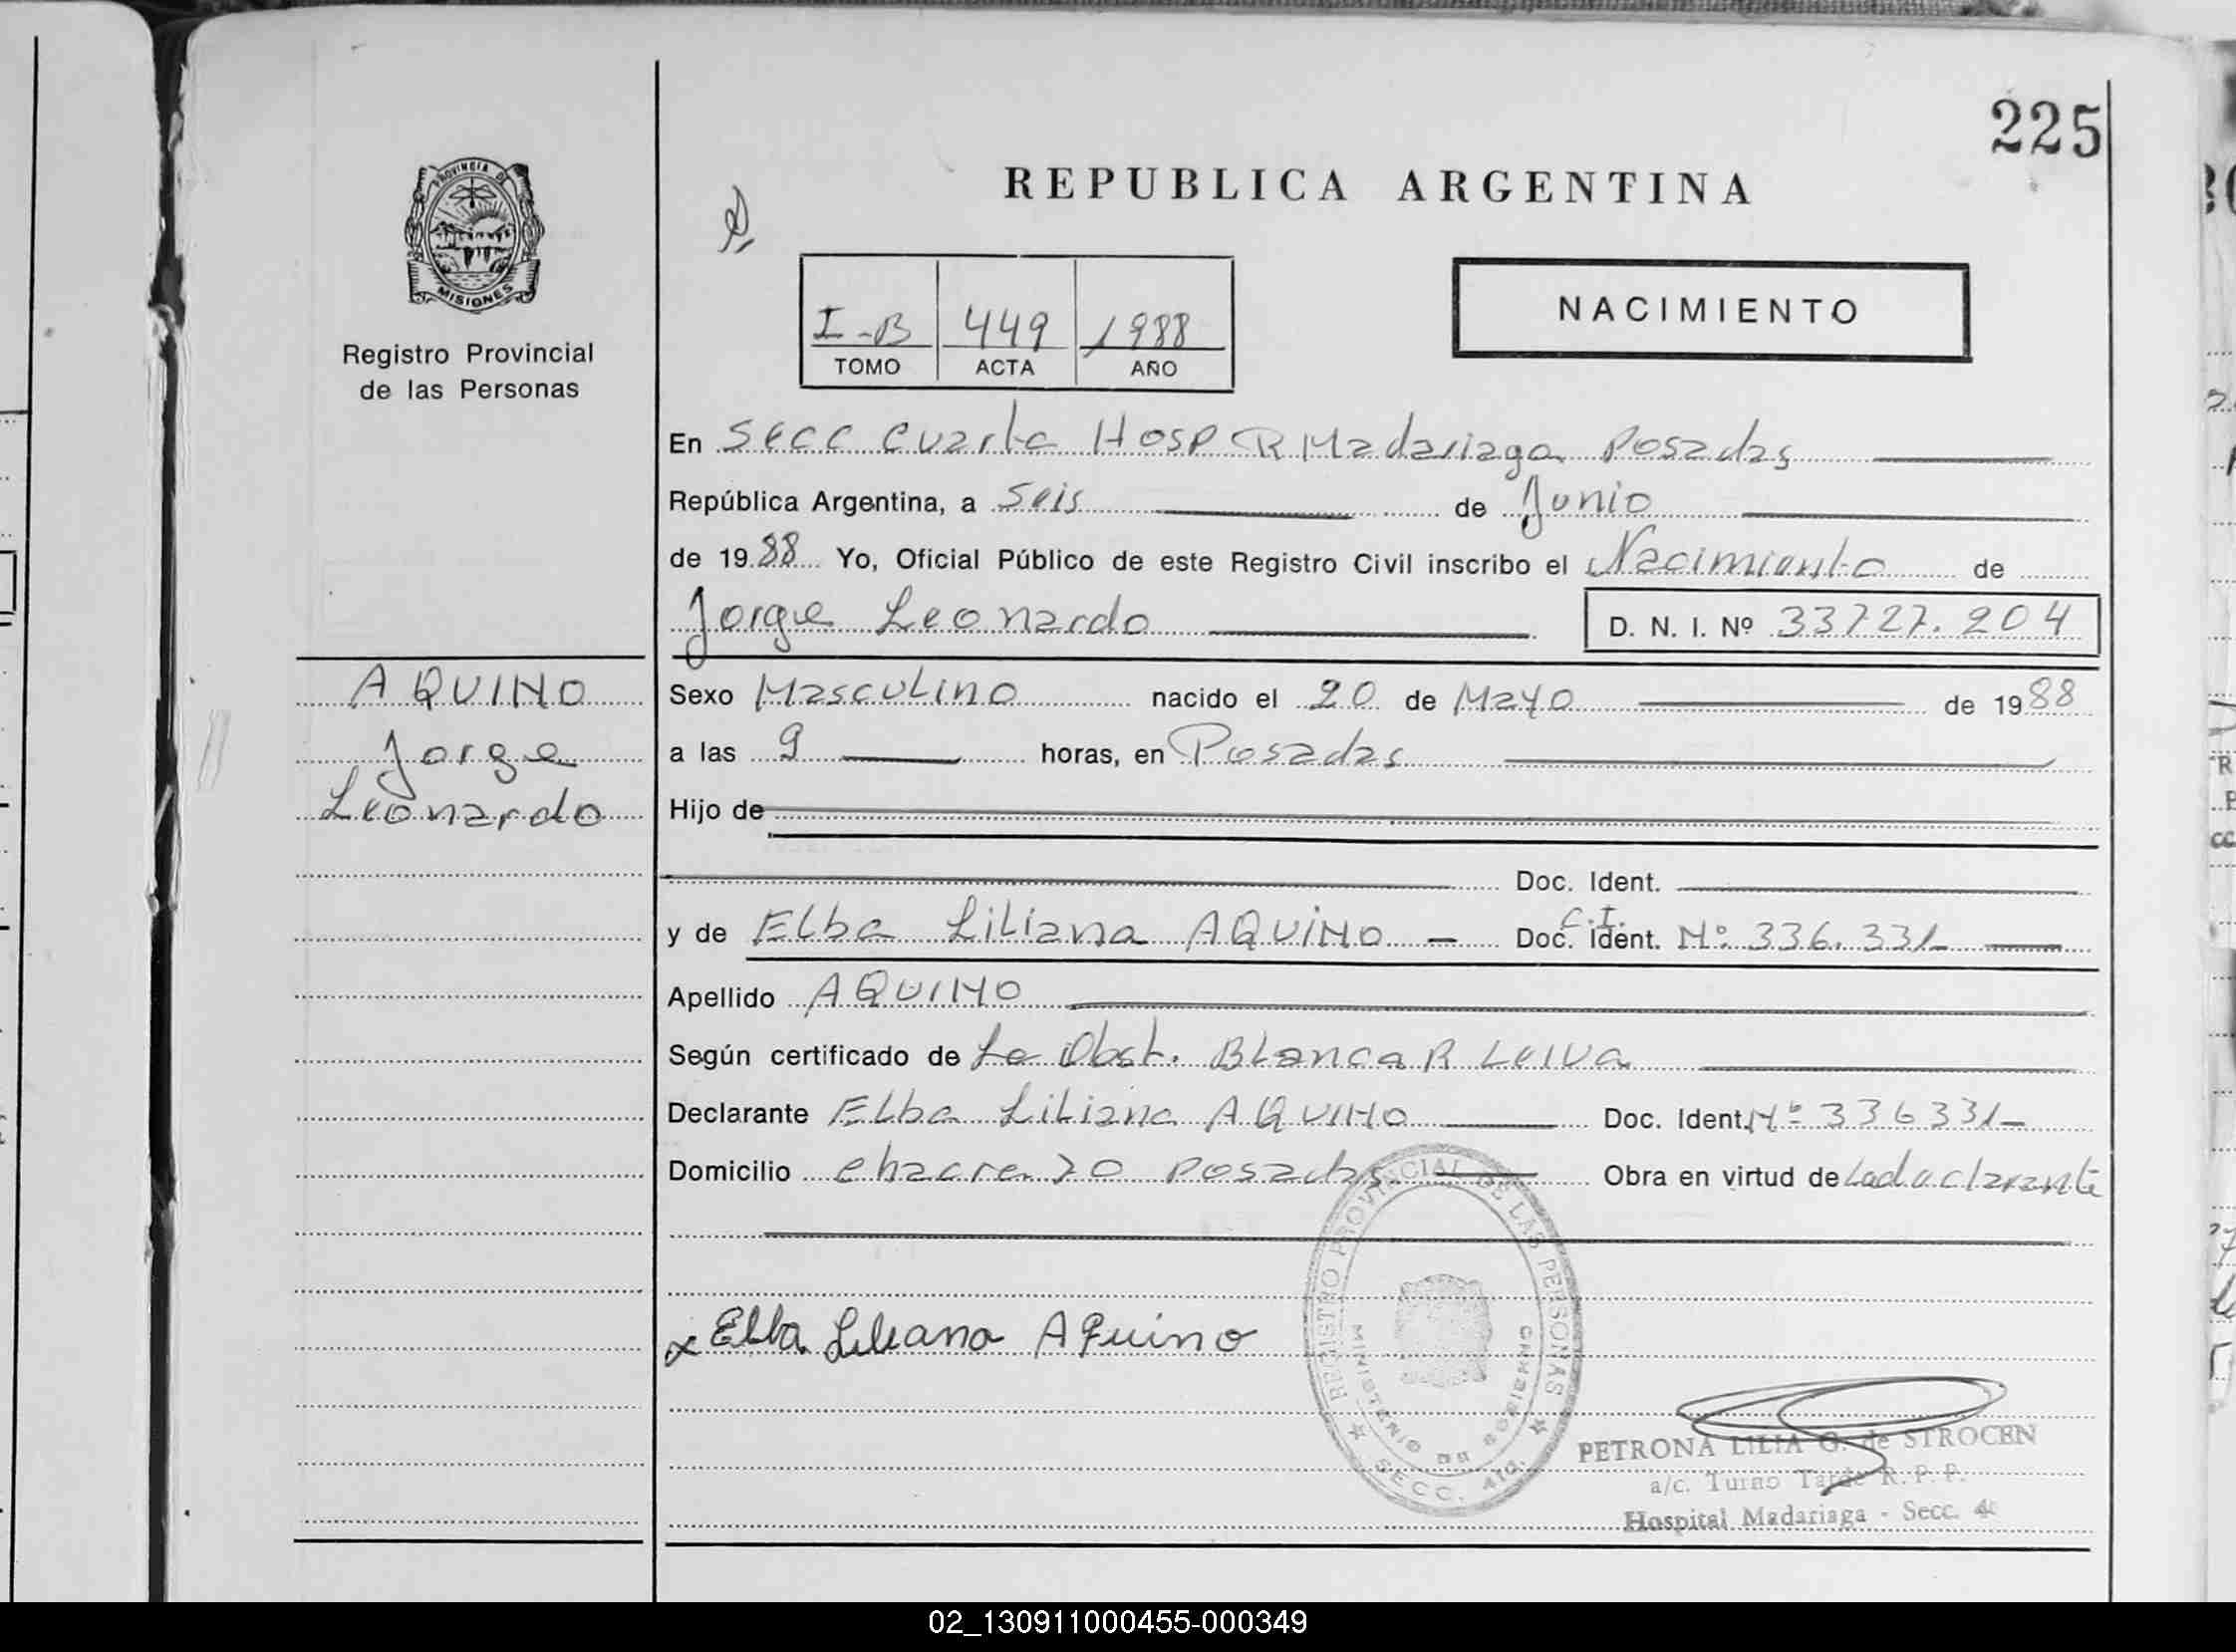 225
REPUBLICA ARGENTINA
PROVINCIA DE
MISIONES
Registro Provincial
de las Personas
I-B 449 1988
TOMO ACTA AÑO
NACIMIENTO
En Secc Cuarta Hosp R Madariaga Posadas
República Argentina, a Seis de Junio
de 1988 Yo, Oficial Público de este Registro Civil inscribo el Nacimiento de
Jorge Leonardo D. N. I. Nº 33727.204
AQUINO
Jorge
Leonardo
Sexo Masculino nacido el 20 de Mayo de 1988
a las 9 horas, en Posadas
Hijo de
Doc. Ident.
C.I.
y de Elba Liliana AQUINO - Doc. Ident. Nº 336.331-
Apellido AQUINO
Según certificado de La Obst. Blanca R Leiva
Declarante Elba Liliana AQUINO Doc. Ident. Nº 336331-
Domicilio chacra 70 Posadas Obra en virtud de La declarante
REGISTRO PROVINCIAL DE LAS PERSONAS
MINISTERIO DE GOBIERNO
SECC. 4ta.
x Elba Liliana Aquino
PETRONA LILIA G. de STROCEN
a/c. Turno Tarde R. P. P.
Hospital Madariaga - Secc. 4
02_130911000455-000349